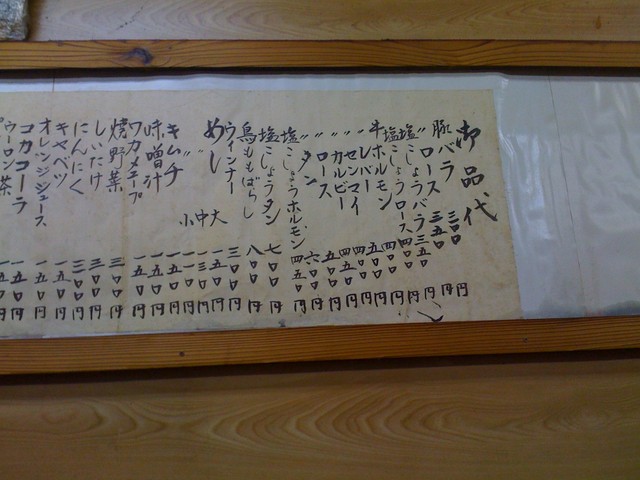 御品代
豚バラ 三〇〇円
〃ロース 三五〇円
〃塩こしょうバラ 三五〇円
〃塩こしょうロース 四〇〇円
牛ホルモン 四〇〇円
〃レバー 五〇〇円
〃センマイ 四〇〇円
〃カルビー 四五〇円
〃ロース 五〇〇円
〃タン 六〇〇円
塩こしょうホルモン 四五〇円
塩こしょうタン 七〇〇円
鳥ももばらし 八〇〇円
ウィンナー 三〇〇円
めし 大 円
〃 中 円
〃 小 円
キムチ 一五〇円
味噌汁 一五〇円
ワカメスープ 一五〇円
焼野菜 三〇〇円
しいたけ 三〇〇円
にんにく 三〇〇円
キャベツ 一五〇円
オレンジジュース 一五〇円
コカコーラ 一五〇円
ウーロン茶 一五〇円